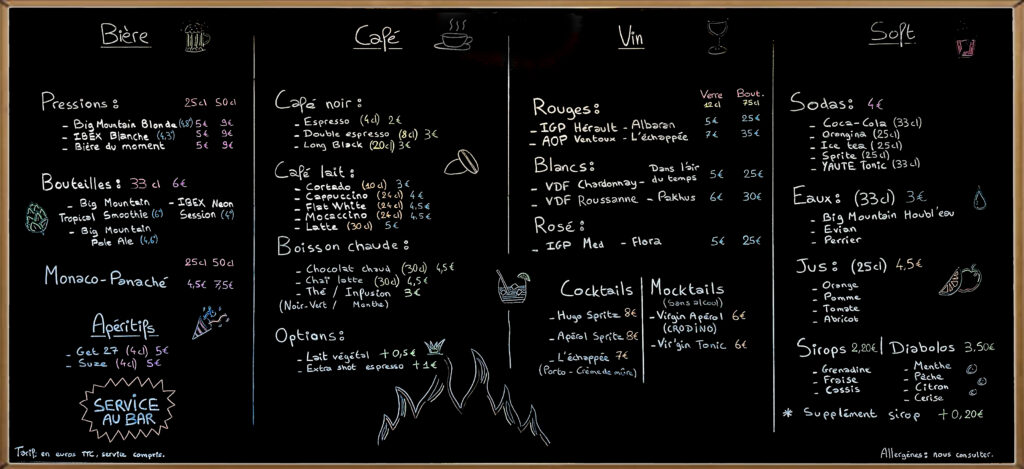 Bière
Pressions: 25cl 50cl
- Big Mountain Blonde (4,8) 5€ 9€
- IBEX Blanche (4,3) 5€ 9€
- Bière du moment 5€ 9€
Bouteilles: 33cl 6€
- Big Mountain
Tropical Smoothie (6°)
- IBEX Neon
Session (4°)
- Big Mountain
Pale Ale (4,6°)
25cl 50cl
Monaco-Panaché 4,5€ 7,5€
Apéritifs
- Get 27 (4cl) 5€
- Suze (4cl) 5€
SERVICE
AU BAR
Tarif en euros TTC, service compris.
Café
Café noir:
- Espresso (4cl) 2€
- Double espresso (8cl) 3€
- Long Black (20cl) 3€
Café lait:
- Cortado (10cl) 3€
- Cappuccino (24cl) 4€
- Flat White (24cl) 4.5€
- Mocaccino (24cl) 4.5€
- Latte (30cl) 5€
Boisson chaude:
- Chocolat chaud (30cl) 4,5€
- Chaï latte (30cl) 4,5€
- Thé / Infusion 3€
(Noir-Vert / Menthe)
Options:
- Lait végétal +0,5€
- Extra shot espresso +1€
Vin
Verre Bout.
12cl 75cl
Rouges:
- IGP Hérault - Albaran 5€ 25€
- AOP Ventoux - L'échappée 7€ 35€
Blancs:
- VDF Chardonnay - Dans l'air
du temps 5€ 25€
- VDF Roussanne - Pakhus 6€ 30€
Rosé:
- IGP Med - Flora 5€ 25€
Cocktails
- Hugo Spritz 8€
- Apérol Spritz 8€
- L'échappée 7€
(Porto - Crème de mûre)
Mocktails
(Sans alcool)
- Virgin Apérol 6€
(CRODINO)
- Vir'gin Tonic 6€
Soft
Sodas: 4€
- Coca-Cola (33cl)
- Orangina (25cl)
- Ice tea (25cl)
- Sprite (25cl)
- YAUTE Tonic (33cl)
Eaux: (33cl) 3€
- Big Mountain Houbl'eau
- Evian
- Perrier
Jus: (25cl) 4,5€
- Orange
- Pomme
- Tomate
- Abricot
Sirops 2,20€ | Diabolos 3,50€
- Grenadine
- Fraise
- Cassis
- Menthe
- Pêche
- Citron
- Cerise
* Supplément sirop +0,20€
Allergènes: nous consulter.